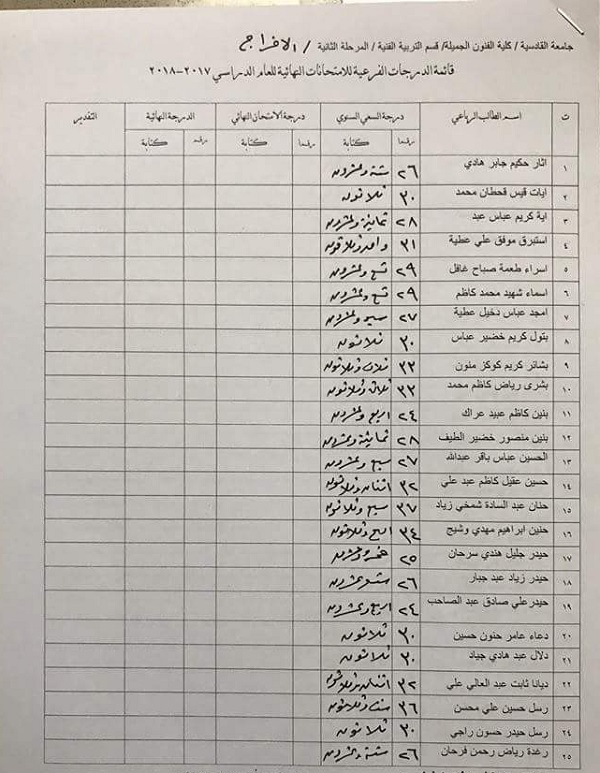 جامعة القادسية / كلية الفنون الجميلة/ قسم التربية الفنية / المرحلة الثانية / الاخراج
قائمة الدرجات الفرعية للامتحانات النهائية للعام الدراسي ٢٠١٧-٢٠١٨
ت اسم الطالب الرباعي درجة السعي السنوي درجة الامتحان النهائي الدرجة النهائية التقدير
رقما كتابة رقما كتابة رقما كتابة
١ اثار حكيم جابر هادي ٢٦ ستة وعشرون
٢ ايات قيس قحطان محمد ٣٠ ثلاثون
٣ اية كريم عباس عبد ٢٨ ثمانية وعشرون
٤ استبرق موفق علي عطية ٣١ واحد وثلاثون
٥ اسراء طعمة صباح غافل ٢٩ تسع وعشرون
٦ اسماء شهيد محمد كاظم ٢٩ تسع وعشرون
٧ امجد عباس دخيل عطية ٢٧ سبع وعشرون
٨ بتول كريم خضير عباس ٣٠ ثلاثون
٩ بشائر كريم كوكز منون ٣٣ ثلاث وثلاثون
١٠ بشرى رياض كاظم محمد ٣٣ ثلاث وثلاثون
١١ بنين كاظم عبيد عراك ٢٤ اربع وعشرون
١٢ بنين منصور خضير الطيف ٢٨ ثمانية وعشرون
١٣ الحسين عباس باقر عبدالله ٢٧ سبع وعشرون
١٤ حسين عقيل كاظم عبد علي ٣٢ اثنان وثلاثون
١٥ حنان عبد السادة شمخي زياد ٣٧ سبع وثلاثون
١٦ حنين ابراهيم مهدي وشيح ٣٤ اربع وثلاثون
١٧ حيدر جليل هندي سرحان ٢٥ خمس وعشرون
١٨ حيدر زياد عبد جبار ٢٦ ست وعشرون
١٩ حيدرعلي صادق عبد الصاحب ٢٤ اربع وعشرون
٢٠ دعاء عامر حنون حسين ٣٠ ثلاثون
٢١ دلال عبد هادي جياد ٣٠ ثلاثون
٢٢ ديانا ثابت عبد العالي علي ٣٢ اثنان وثلاثون
٢٣ رسل حسين علي محسن ٣٦ ست وثلاثون
٢٤ رسل حيدر حسون راجي ٣٠ ثلاثون
٢٥ رغدة رياض رحمن فرحان ٢٦ ستة وعشرون